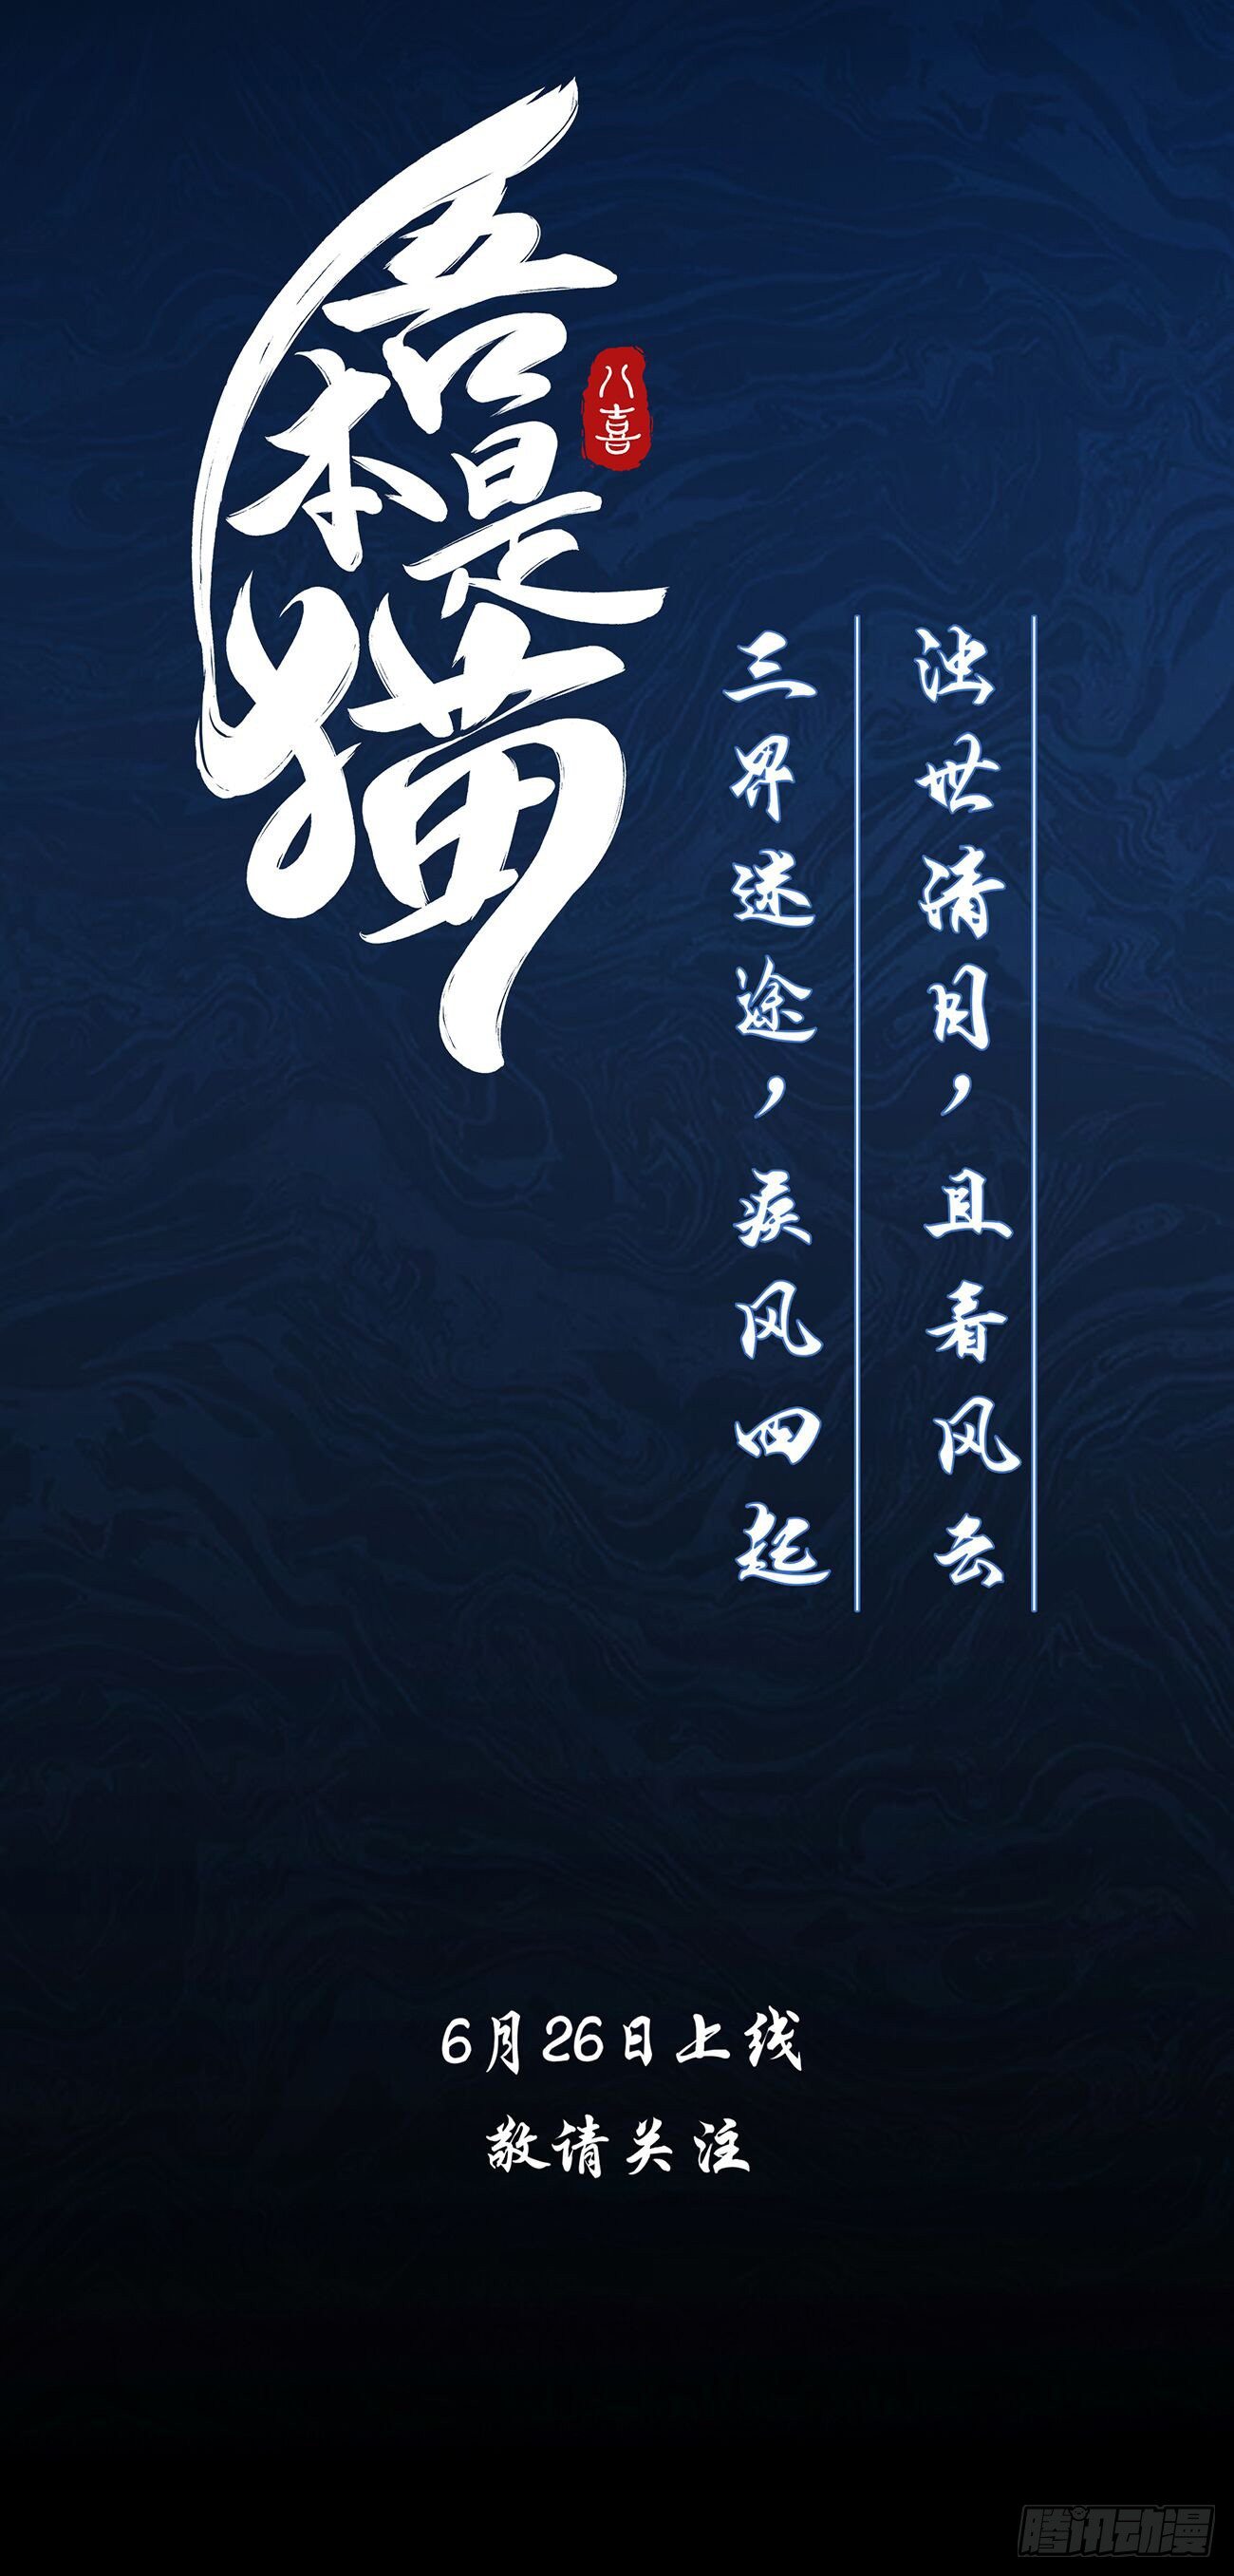 吾本是猫
八喜
浊世清月，且看风去
三界迷途，疾风四起
6月26日上线
敬请关注
腾讯动漫